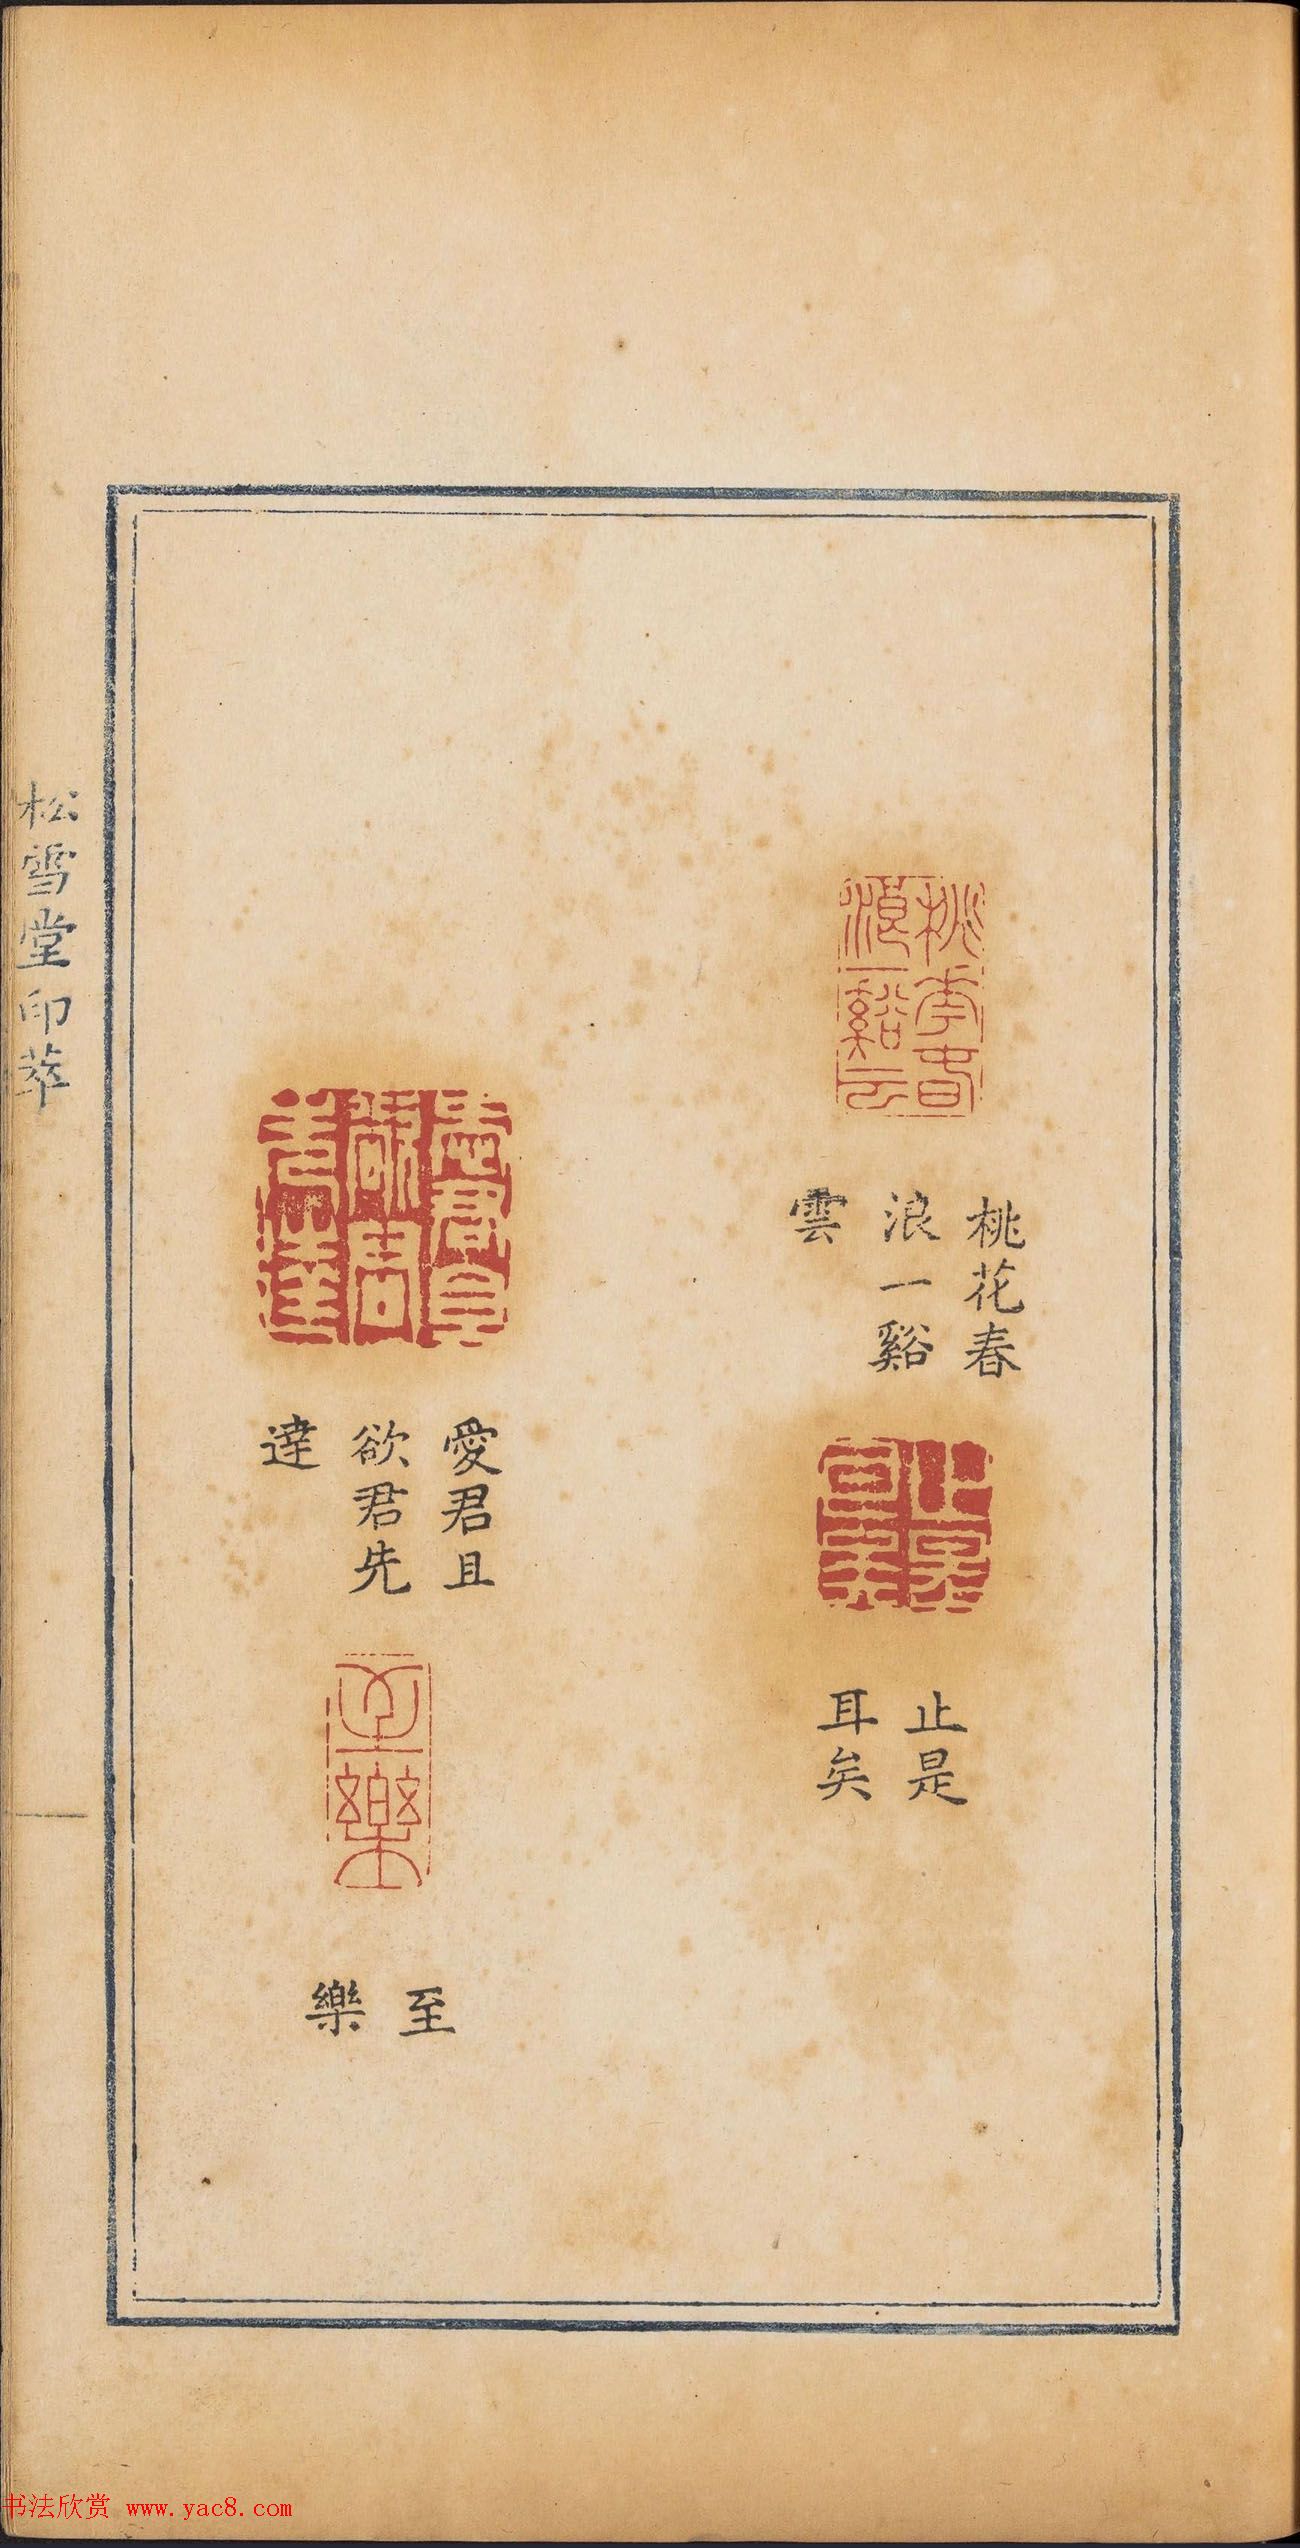 桃花春
浪一谿
雲
止是
耳矣
愛君且
欲君先
達
至
樂
松雪堂印萃
书法欣赏 www.yac8.com